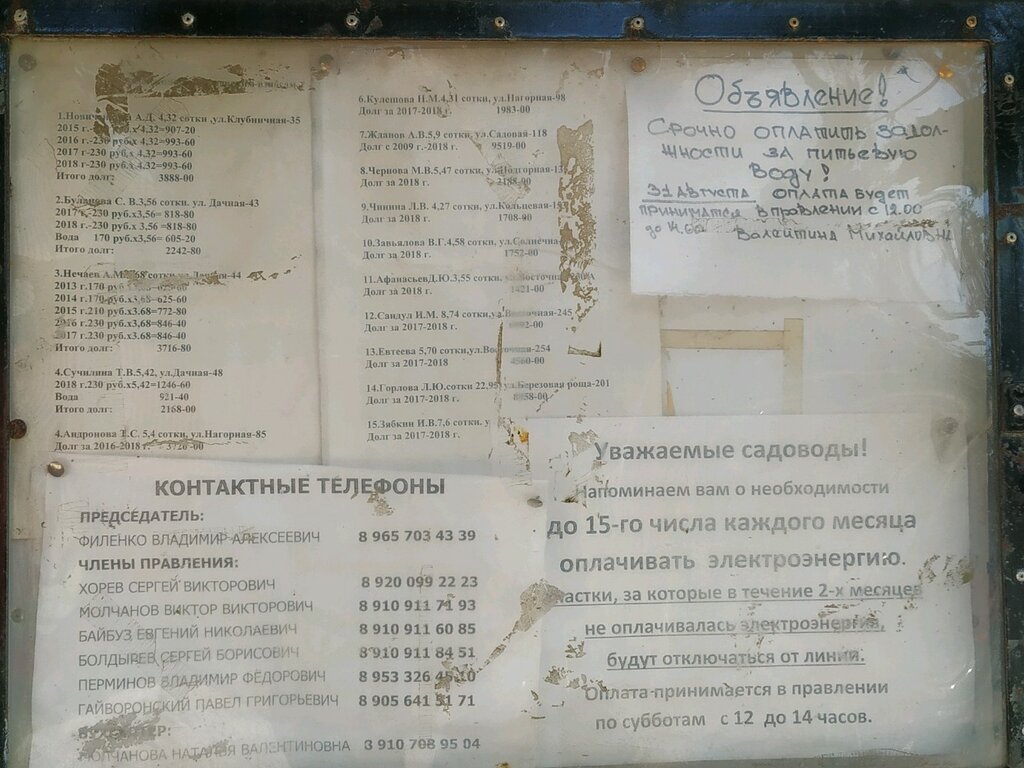 А.Д. 4,32 сотки ,ул.Клубничная-35
2015 г.- руб.х 4,32=907-20
2016 г.-230 руб.х 4,32=993-60
2017 г-230 руб.х 4,32=993-60
2018 г-230 руб.х 4,32=993-60
Итого долг: 3888-00
2.Буланова С. В.3,56 сотки. ул. Дачная-43
2017 г.-230 руб.х3,56= 818-80
2018 г.-230 руб.х 3,56 =818-80
Вода 170 руб.х3,56= 605-20
Итого долг: 2242-80
3.Нечаев А.М. сотки,ул.Дачная-44
2013 г.170 руб
2014 г.170-руб.х3,68=625-60
2015 г.210 руб.х3.68=772-80
2016 г.230 руб.х3.68=846-40
2017 г.230 руб.х3.68=846-40
Итого долг: 3716-80
4.Сучилина Т.В.5,42, ул.Дачная-48
2018 г.230 руб.х5,42=1246-60
Вода 921-40
Итого долг: 2168-00
4.Андронова Т.С. 5,4 сотки, ул.Нагорная-85
Долг за 2016-2018 г. 3726-00
6.Кулешова Н.М.4,31 сотки, ул.Нагорная-98
Долг за 2017-2018 г. 1983-00
7.Жданов А.В.5,9 сотки, ул.Садовая-118
Долг с 2009 г.-2018 г. 9519-00
8.Чернова М.В.5,47 сотки, ул.Подгорная-
Долг за 2018 г. 2188-00
9.Чинина Л.В. 4,27 сотки, ул.Кольцевая-
Долг за 2018 г. 1708-00
10.Завьялова В.Г.4,58 сотки, ул.Солнечна
Долг за 2018 г. 1752-00
11.АфанасьевД.Ю.3,55 сотки, ул.Восточная
Долг за 2018 г. 1421-00
12.Сандул И.М. 8,74 сотки,ул.Восточная-245
Долг за 2017-2018 г.
13.Евтеева 5,70 сотки,ул.Восточная-254
Долг за 2017-2018 4560-00
14.Горлова Л.Ю.сотки 22,95 ул.Березовая роща-201
Долг за 2017-2018 г.
15.Зибкин И.В.7,6 сотки. у
Долг за 2017-2018 г.
Объявление!
Срочно оплатить задол-
жности за питьевую
воду!
31 августа оплата будет
приниматся в правлении с 12.00
до 14.00 Валентина Михайловна
КОНТАКТНЫЕ ТЕЛЕФОНЫ
ПРЕДСЕДАТЕЛЬ:
ФИЛЕНКО ВЛАДИМИР АЛЕКСЕЕВИЧ 8 965 703 43 39
ЧЛЕНЫ ПРАВЛЕНИЯ:
ХОРЕВ СЕРГЕЙ ВИКТОРОВИЧ 8 920 099 22 23
МОЛЧАНОВ ВИКТОР ВИКТОРОВИЧ 8 910 911 71 93
БАЙБУЗ ЕВГЕНИЙ НИКОЛАЕВИЧ 8 910 911 60 85
БОЛДЫРЕВ СЕРГЕЙ БОРИСОВИЧ 8 910 911 84 51
ПЕРМИНОВ ВЛАДИМИР ФЁДОРОВИЧ 8 953 326 45 10
ГАЙВОРОНСКИЙ ПАВЕЛ ГРИГОРЬЕВИЧ 8 905 641 51 71
БУХГАЛТЕР:
МОЛЧАНОВА НАТАЛЬЯ ВАЛЕНТИНОВНА 8 910 708 95 04
Уважаемые садоводы!
Напоминаем вам о необходимости
до 15-го числа каждого месяца
оплачивать электроэнергию.
астки, за которые в течение 2-х месяцев
не оплачивалась электроэнергия,
будут отключаться от линии.
Оплата принимается в правлении
по субботам с 12 до 14 часов.